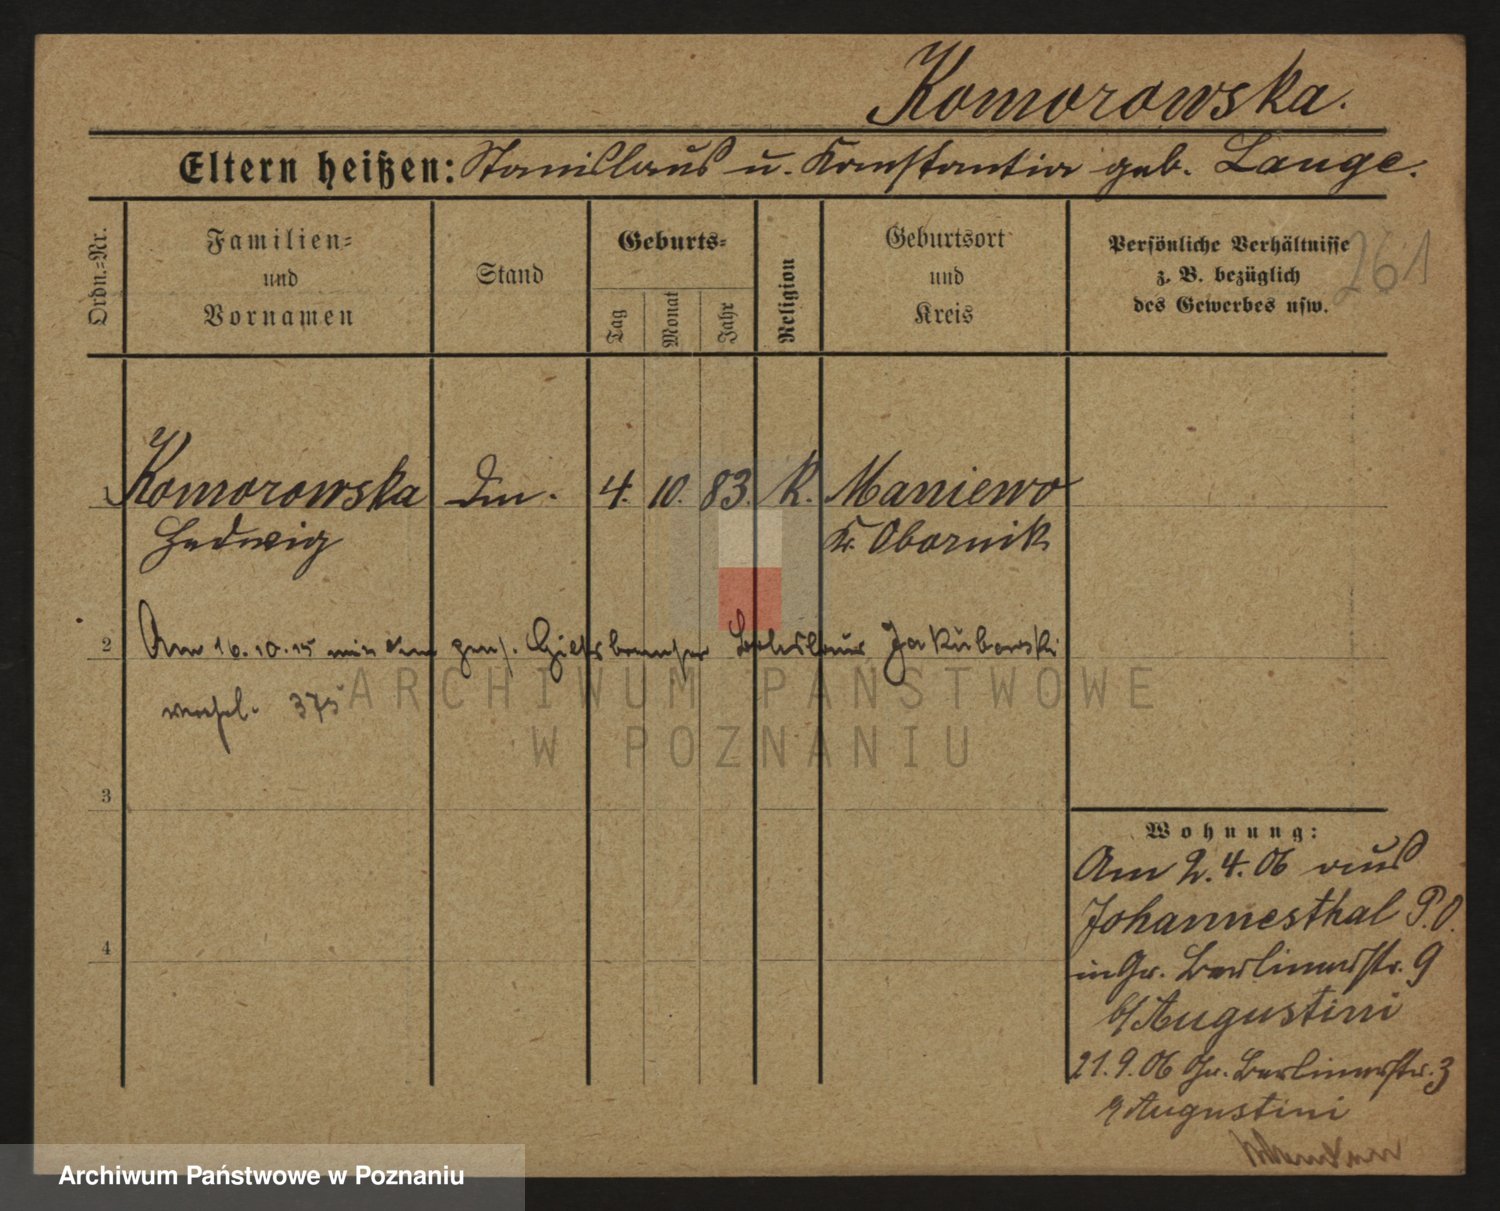 Komorowska.
Eltern heißen: Stanislaus u. Konstantia geb. Lange.
Ordn.=Nr.
Familien=
und
Vornamen
Stand
Geburts=
Tag
Monat
Jahr
Religion
Geburtsort
und
Kreis
Persönliche Verhältnisse
z. B. bezüglich
des Gewerbes usw.
261
1 Komorowska 4. 10. 83. K. Maniewo
Hedwig Kr. Obornik
2 Am 16.10.15 mit dem Jakubowski
verehel. 375
3
4
Wohnung:
Am 2.4.06 aus
Johannesthal P.O.
in Gr. Berlinerstr. 9
b/ Augustini
21.9.06 Gr. Berlinerstr. 3
Augustini
ARCHIWUM PAŃSTWOWE
W POZNANIU
Archiwum Państwowe w Poznaniu